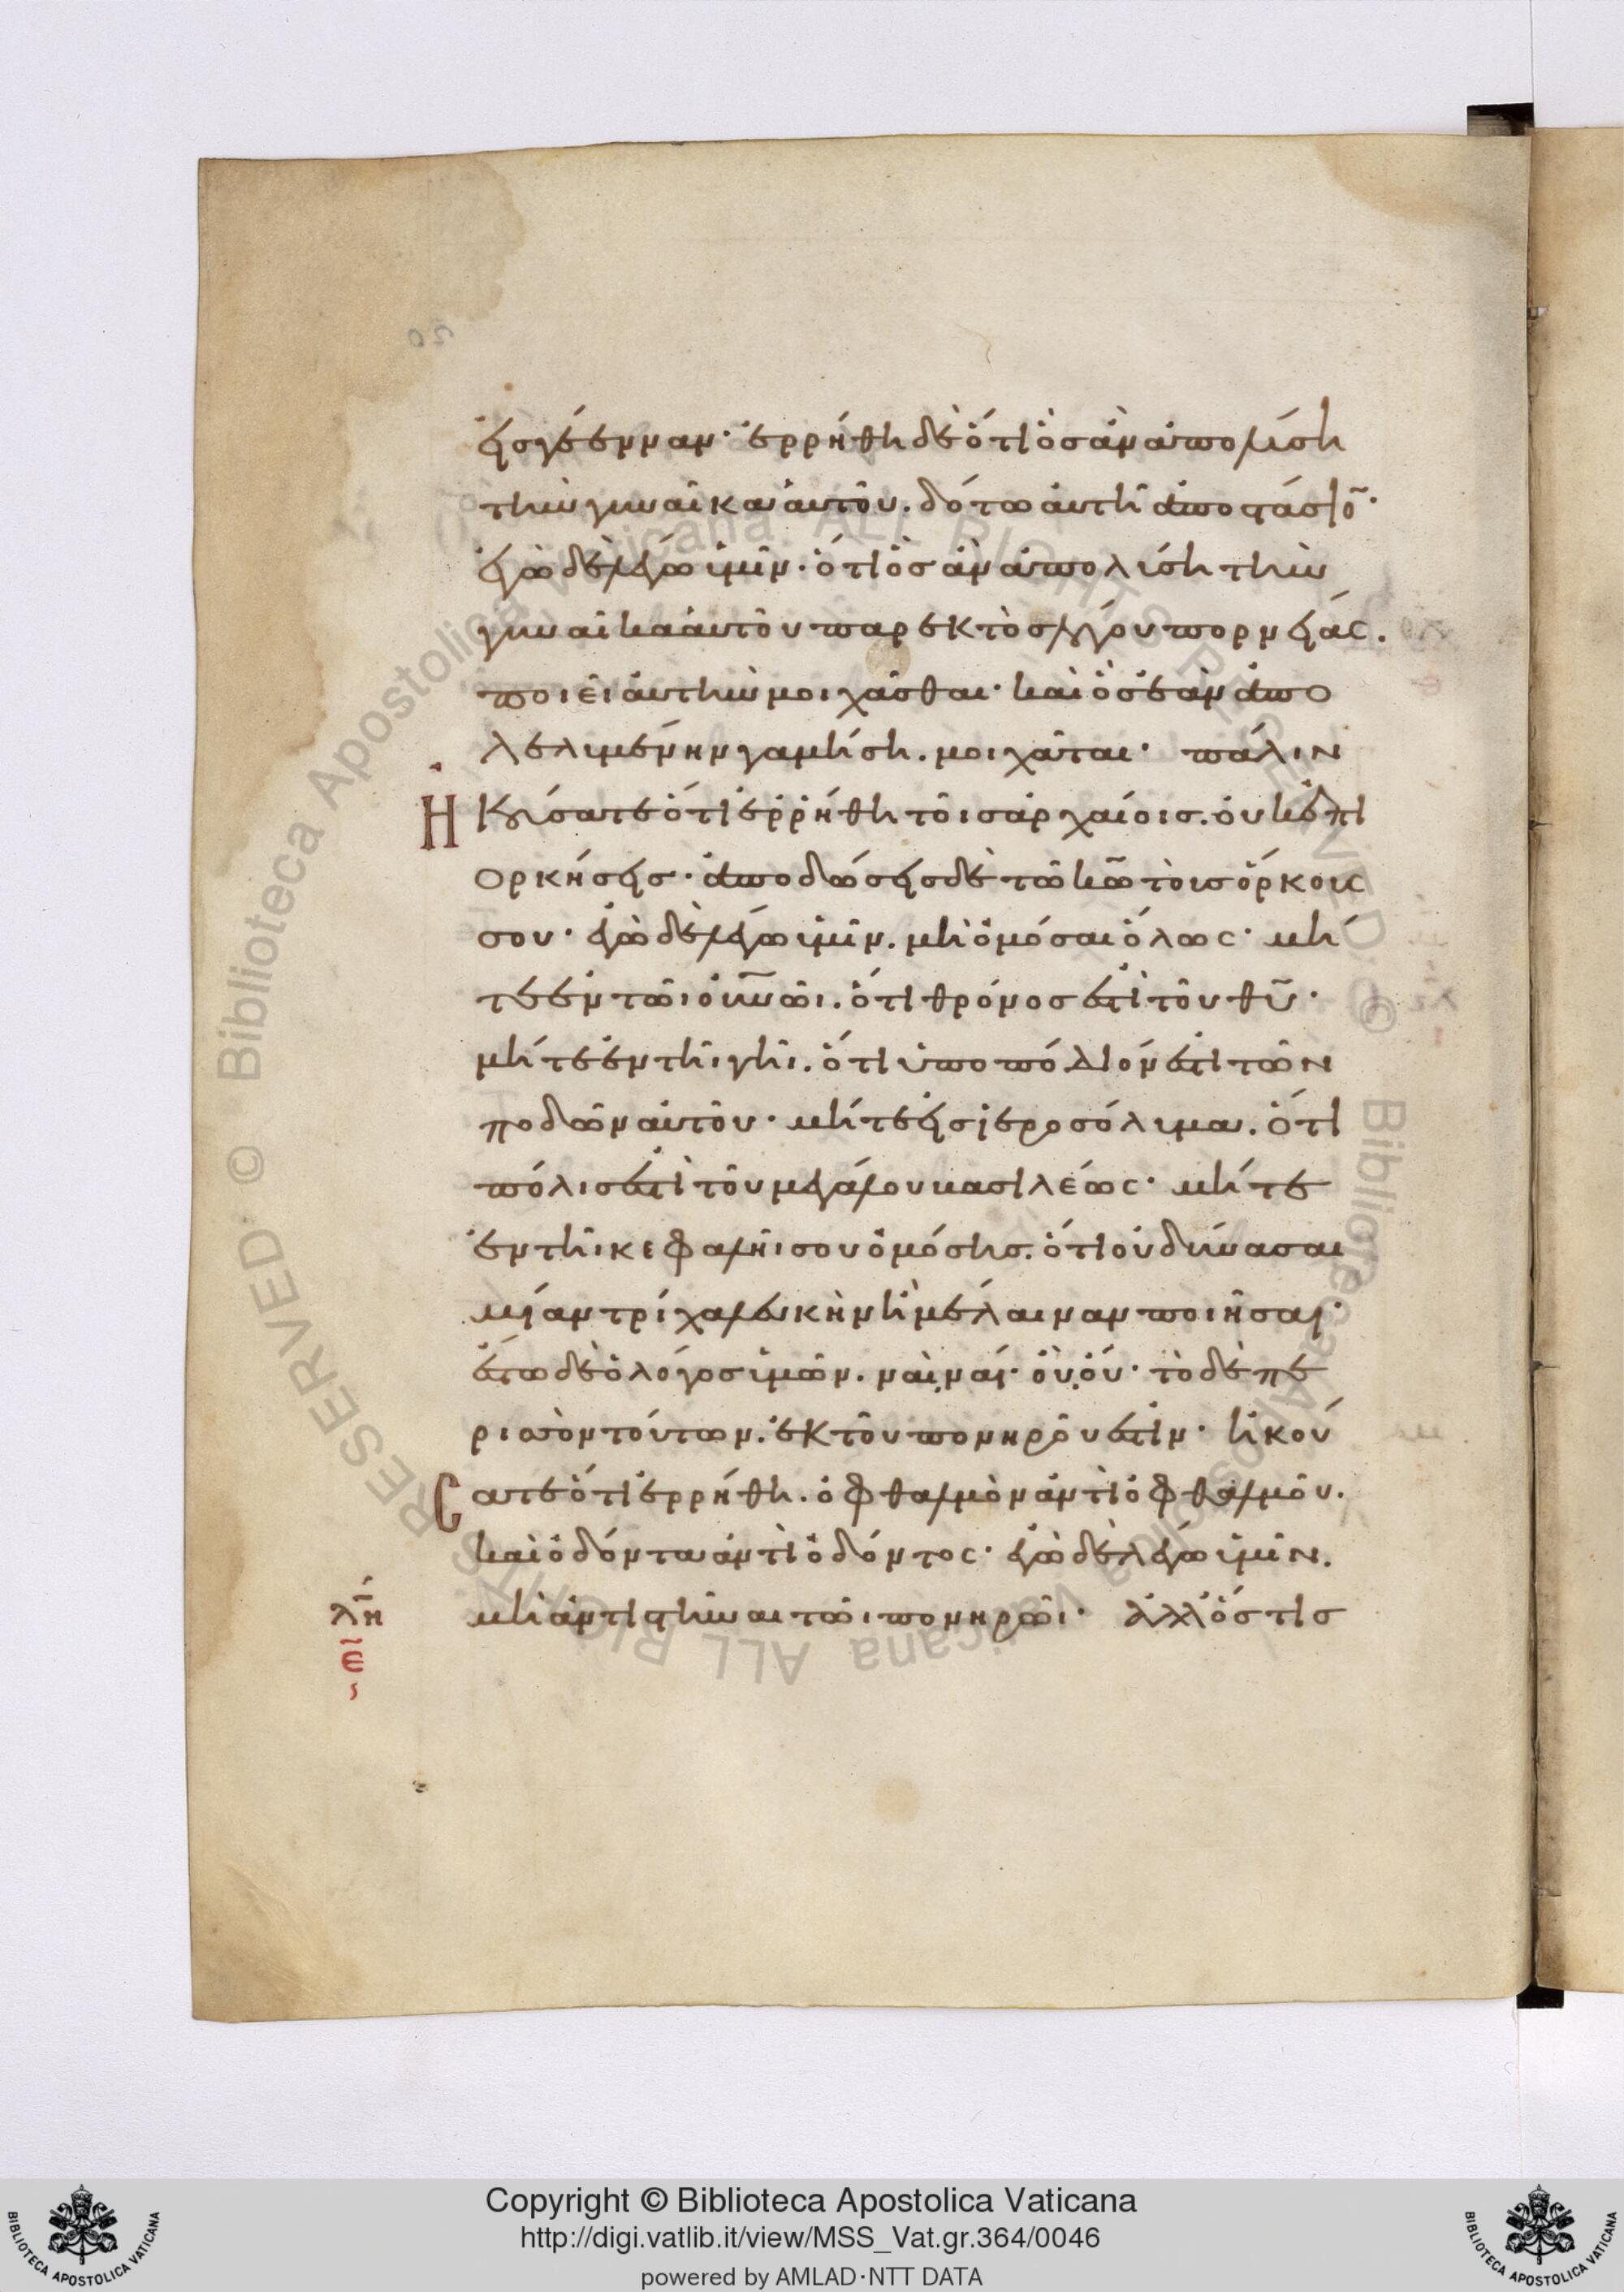 εἰς γέενναν· ἐρρήθη δὲ ὅτι ὃς ἂν ἀπολύση
τὴν γυναῖκα αὐτοῦ. δότω αὐτῆ ἀποστάσιο̅·
ἐγὼ δὲ λέγω ὑμῖν· ὅτι ὃς ἂν ἀπολύση τὴν
γυναῖκα αὐτοῦ παρεκτὸς λόγου πορνείας.
ποιεῖ αὐτὴν μοιχᾶσθαι· καὶ ὃς ἐὰν ἀπο
λελυμένην γαμήση. μοιχᾶται· πάλιν
Ἠ κούσατε ὅτι ἐρρήθη τοῖς ἀρχαίοις. οὐκ ἐπι
ορκήσεις· ἀποδώσεις δὲ τῶ κ̅ω̅ τοὺς ὅρκους
σου· ἐγὼ δὲ λέγω ὑμῖν. μὴ ὀμόσαι ὅλως· μή
τε ἐν τῶι οὐ̅ν̅ῶι. ὅτι θρόνος ἐστὶ τοῦ θ̅υ̅·
μήτε ἐν τῆι γῆι. ὅτι ὑποπόδιόν ἐστι τῶν
ποδῶν αὐτοῦ· μήτε εἰς ἱεροσόλυμα. ὅτι
πόλις ἐστὶ τοῦ μεγάλου βασιλέως· μήτε
ἐν τῆι κεφαλῆι σου ὀμόσης. ὅτι οὐ δύνασαι
μίαν τρίχα λευκὴν ἢ μέλαιναν ποιῆσαι·
ἔστω δὲ ὁ λόγος ὑμῶν. ναὶ, ναί· οὒ, οὔ· τὸ δὲ πε
ρισσὸν τούτων. ἐκ τοῦ πονηροῦ ἐστιν· ἠκού
σατε ὅτι ἐρρήθη. ὀφθαλμὸν ἀντὶ ὀφθαλμοῦ.
καὶ ὀδόντα ἀντὶ ὀδόντος· ἐγὼ δὲ λέγω ὑμῖν.
λη
ε
μὴ ἀντιστῆναι τῶι πονηρῶι· ἀλλ' ὅστις
Copyright © Biblioteca Apostolica Vaticana
http://digi.vatlib.it/view/MSS_Vat.gr.364/0046
powered by AMLAD·NTT DATA